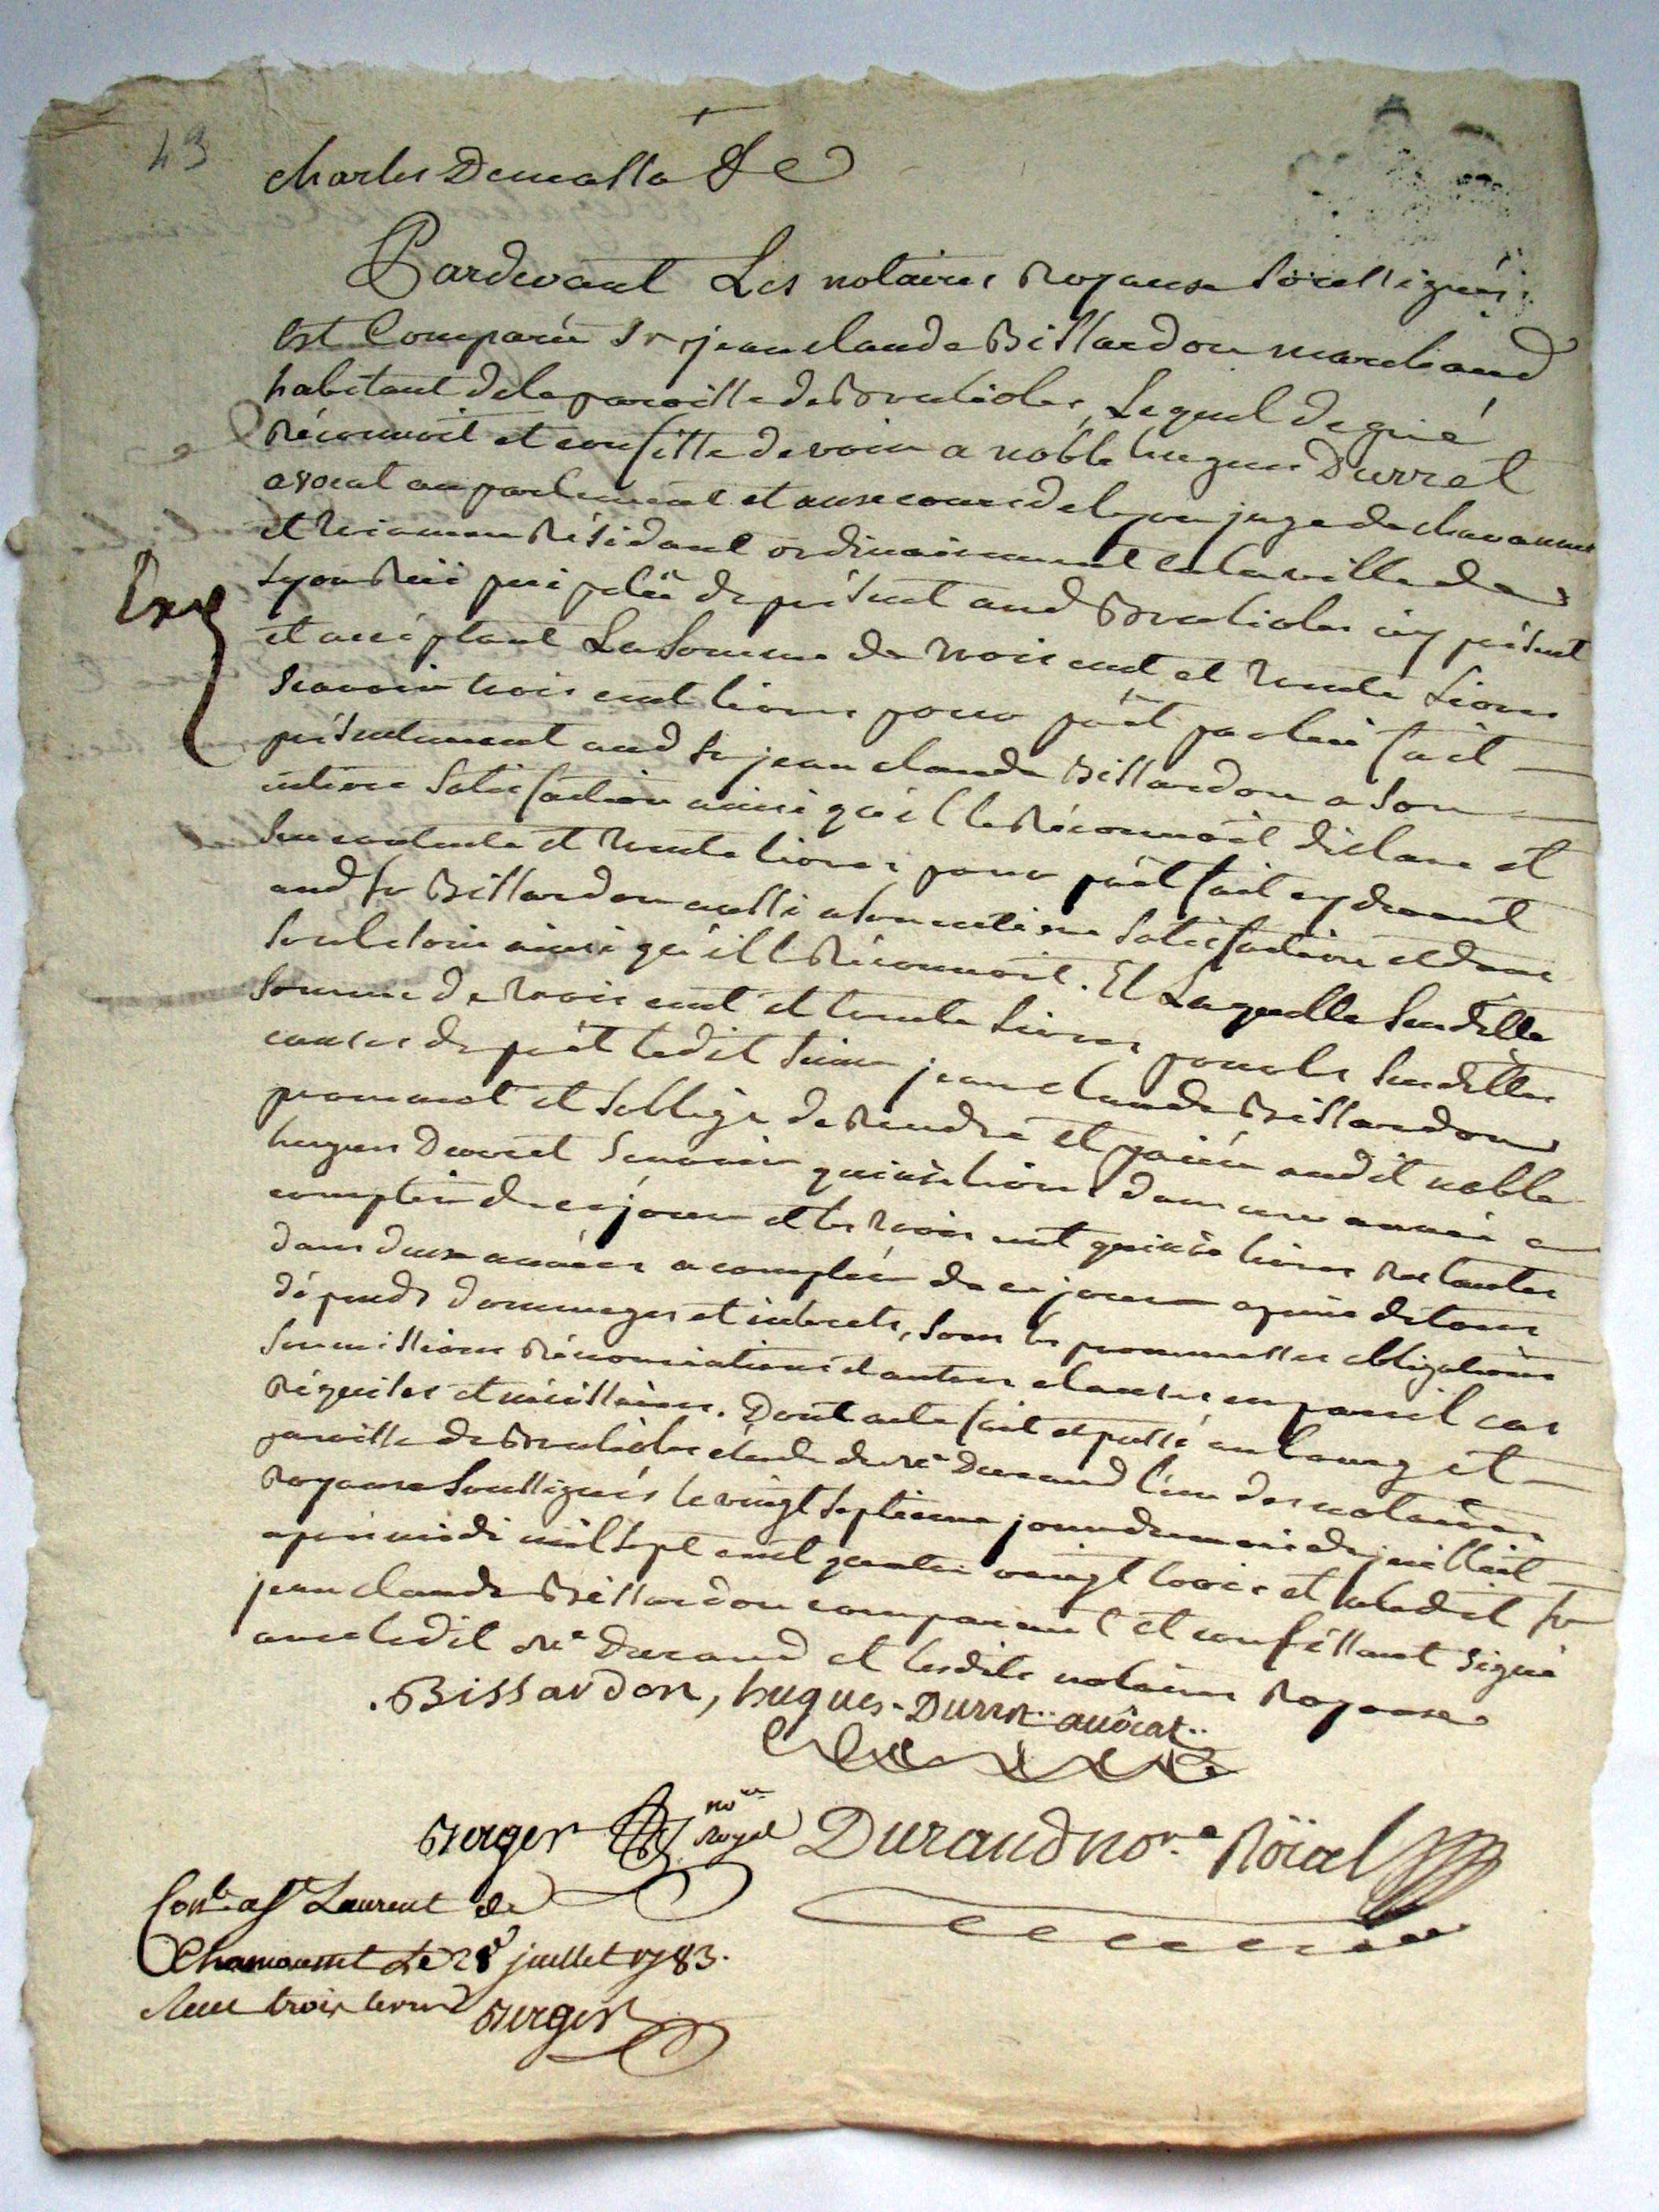 43
charles Demassa &c
Pardevant Les notaires Royaux Soussignés
Est Comparu Sr jean claude Bissardon marchand
habitant de la paroisse de Brulioles, Lequel de gré
Réconnoit et confesse devoir a noble hugues Durret
avocat au parlement et aux cours de lyon juge de chavannes
et résidant ordinairement en la ville de
lyon prêt de présent aud Brulioles icy présent
et acceptant La Somme de trois cent et trente Livres
Scavoir trois cent livres pour prêt par lui fait
présentement aud Sr jean claude Bissardon a Son
entiere Satisfaction ainsi qu'il le Réconnoit déclare et
Sen contente et trente livres pour prêt fait cy devant
aud Sr Bissardon aussi a Son entiere Satisfaction
ainsi qu'il le Réconnoit. Et Laquelle Susditte
Somme de trois cent et trente livres pour les Susdittes
causes de prêt ledit Sieur jean claude Bissardon
promet et S'oblige de Rendre et païer audit noble
hugues Durret Scavoir quinze livres dans une année a
compter de ce jour et les trois cent quinze livres Restantes
dans deux années a compter de ce jour a peine de tous
dépends dommages et interets, Sous les promesses obligations
Soumissions Rénonciations et autres clauses en pareil cas
Réquises et nécessaires. Dont acte fait et passé au bourg et
paroisse de Brulioles étude de Me Durand l'un des notaires
Royaux Soussignés le vingt Septieme jour du mois de juillet
apres midi mil Sept cent quatre vingt trois et a ledit Sr
jean claude Bissardon comparant et confessant Signé
avec ledit Me Durand et lesdits notaires Royaux
Bissardon, hugues Durret avocat
Berger nore Royal Durand nore Röïal
Conle a St Laurent de
Chamousset Le 28 juillet 1783.
trois livres Berger